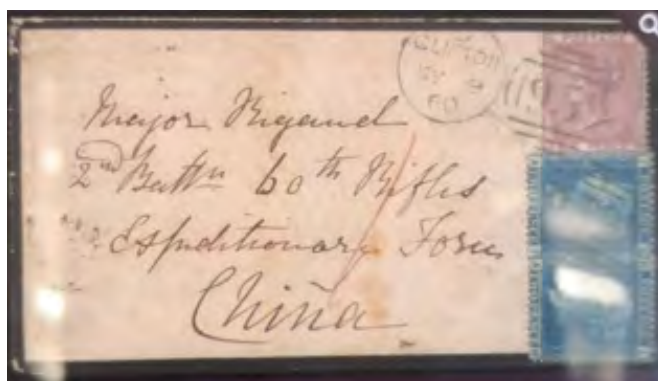 CLIFTON
60
Major Rigaud
2nd Battn 60th Rifles
Expeditionary Force
China